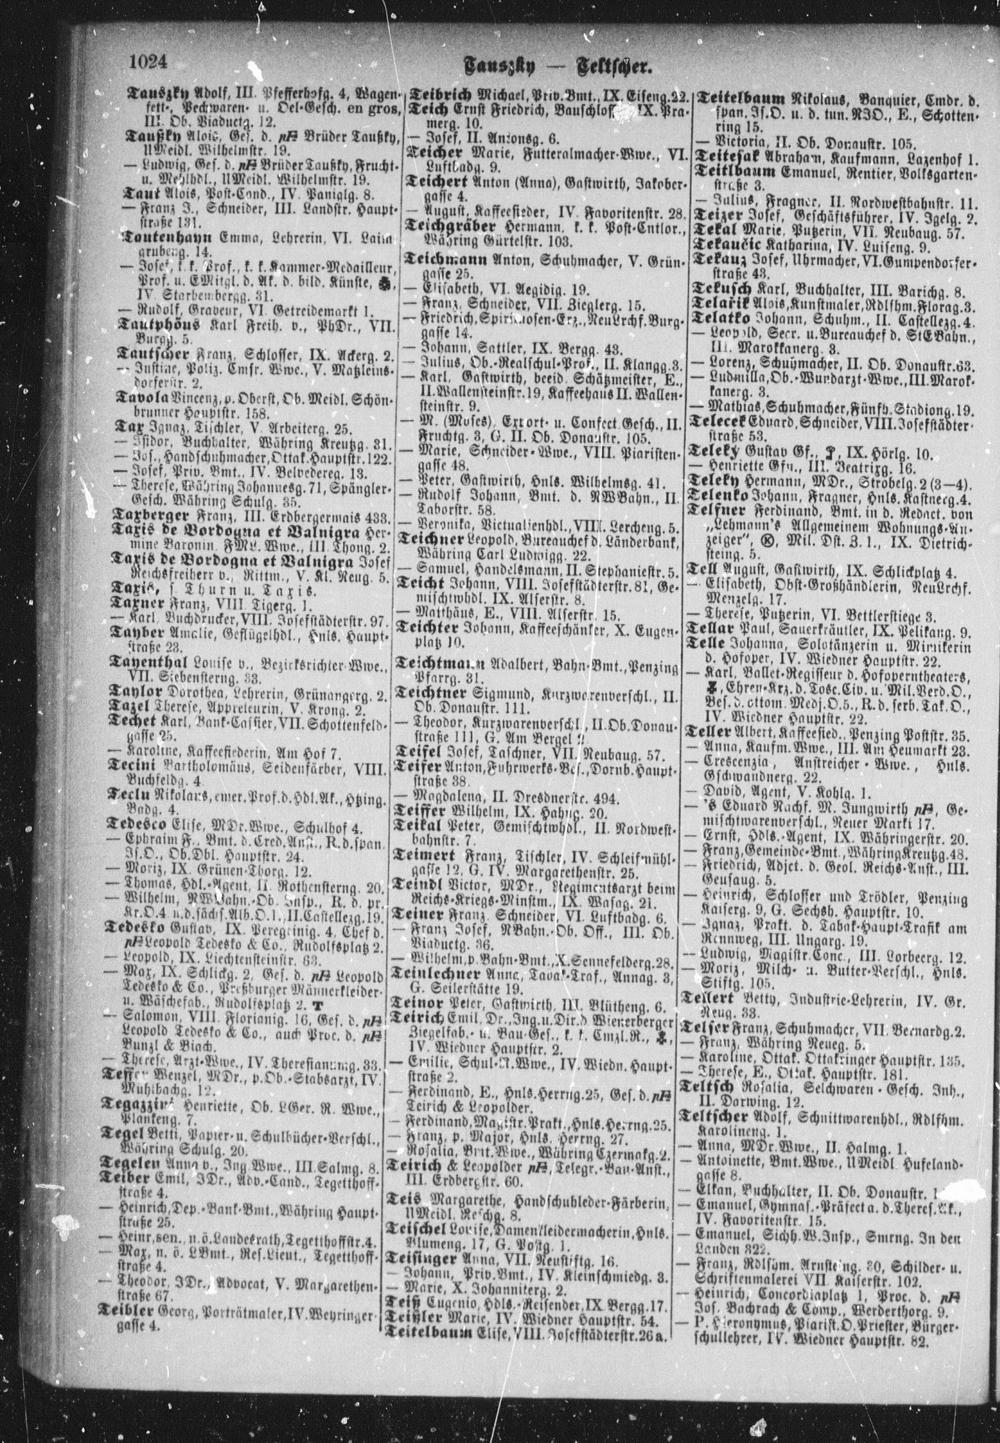 1024
Tauszky — Teltscher.
Tauszky Adolf, III. Pfefferhofg. 4, Wagen-
fett-, Pechwaren- u. Oel-Gesch. en gros,
III. Ob. Viaductg. 12.
Taußky Alois, Ges. d. Brüder Taußky,
UMeidl. Wilhelmstr. 19.
— Ludwig, Ges. d. Brüder Taußky, Frucht-
u. Mehlhdl., UMeidl. Wilhelmstr. 19.
Taut Alois, Post-Cond., IV. Paniglg. 8.
— Franz J., Schneider, III. Landstr. Haupt-
straße 131.
Tautenhayn Emma, Lehrerin, VI.
grubeng. 14.
— Josef, k. k. Prof., k. k. Kammer-Medailleur,
Prof. u. EMitgl. d. Ak. d. bild. Künste,
IV. Starhembergg. 31.
— Rudolf, Graveur, VI. Getreidemarkt 1.
Tautphöus Karl Freih. v., PhDr., VII.
Burgg. 5.
Tautscher Franz, Schlosser, IX. Ackerg. 2.
— Justine, Poliz. Cmsr. Wwe., V. Matzleins-
dorferstr. 2.
Tavola Vincenz, p. Oberst, Ob. Meidl. Schön-
brunner Hauptstr. 158.
Tax Ignaz, Tischler, V. Arbeiterg. 25.
— Isidor, Buchhalter, Währing Kreuzg. 31.
— Jos., Handschuhmacher, Ottak. Hauptstr. 122.
— Josef, Priv. Bmt., IV. Belvedereg. 13.
— Therese, Währing Johannesg. 71, Spängler-
Gesch. Währing Schulg. 35.
Taxberger Franz, III. Erdbergermais 433.
Taxis de Bordogna et Valnigra Her-
mine Baronin, FML. Wwe., III. Thong. 2.
Taxis de Bordogna et Valnigra Josef
Reichsfreiherr v., Rittm., V. Kl. Neug. 5.
Taxis, s. Thurn u. Taxis.
Taxner Franz, VIII. Tigerg. 1.
— Karl, Buchdrucker, VIII. Josefstädterstr. 97.
Tayber Amalie, Geflügelhdl., Hnls. Haupt-
straße 23.
Tayenthal Louise v., Bezirksrichter-Wwe.,
VII. Siebensterng. 33.
Taylor Dorothea, Lehrerin, Grünangerg. 2.
Tazel Therese, Appreteurin, V. Krong. 2.
Techet Karl, Bank-Cassier, VII. Schottenfeld-
gasse 25.
— Karoline, Kaffeesiederin, Am Hof 7.
Tecini Bartholomäus, Seidenfärber, VIII.
Buchfeldg. 4.
Teclu Nikolaus, emer. Prof. d. Hdl. Ak., Htzing.
Badg. 4.
Tedesco Elise, MDr. Wwe., Schulhof 4.
— Ephraim F., Bmt. d. Cred. Anst., R. d. span.
Is. O., Ob. Dbl. Hauptstr. 24.
— Moriz, IX. Grünen-Thorg. 12.
— Thomas, Hdl.-Agent, II. Rothensterng. 20.
— Wilhelm, NWBahn.-Ob. Insp., R. d. pr.
Kr. O. 4. u. d. sächs. Alb. O. 1., II. Castellezg. 19.
Tedesko Gustav, IX. Peregrinig. 4, Chef d.
Leopold Tedesko & Co., Rudolfsplatz 2.
— Leopold, IX. Liechtensteinstr. 63.
— Max, IX. Schlickg. 2, Ges. d. Leopold
Tedesko & Co., Preßburger Männerkleider-
u. Wäschefab., Rudolfsplatz 2. T
— Salomon, VIII. Florianig. 16, Ges. d.
Leopold Tedesko & Co., auch Proc. d.
Bunzl & Biach.
— Therese, Arzt-Wwe., IV. Theresianumg. 33.
Teffer Wenzel, MDr., p. Ob.-Stabsarzt, IV.
Mühlbachg. 12.
Tegazzini Henriette, Ob. LGer. R. Wwe.,
Plankeng. 7.
Tegel Betti, Papier- u. Schulbücher-Verschl.,
Währing Schulg. 20.
Tegelen Anna v., Ing. Wwe., III. Salmg. 8.
Teiber Emil, JDr., Adv.-Cand., Tegetthoff-
straße 4.
— Heinrich, Dep.-Bank-Bmt., Währing Haupt-
straße 25.
— Heinr. sen., n. ö. Landesrath, Tegetthoffstr. 4.
— Max, n. ö. LBmt., Res. Lieut., Tegetthoff-
straße 4.
— Theodor, JDr., Advocat, V. Margarethen-
straße 67.
Teibler Georg, Porträtmaler, IV. Weyringer-
gasse 4.
Teibrich Michael, Priv. Bmt., IX. Eiseng. 22.
Teich Ernst Friedrich, Bauschloss., IX. Pra-
merg. 10.
— Josef, II. Antonsg. 6.
Teicher Marie, Futteralmacher-Wwe., VI.
Luftbadg. 9.
Teichert Anton (Anna), Gastwirth, Jakober-
gasse 4.
— August, Kaffeesieder, IV. Favoritenstr. 28.
Teichgräber Hermann, k. k. Post-Cntlor.,
Währing Gürtelstr. 103.
Teichmann Anton, Schuhmacher, V. Grün-
gasse 25.
— Elisabeth, VI. Aegidig. 19.
— Franz, Schneider, VII. Zieglerg. 15.
— Friedrich, Spirituosen-Erz., NeuLrchf. Burg-
gasse 14.
— Johann, Sattler, IX. Bergg. 43.
— Julius, Ob.-Realschul-Prof., II. Klangg. 3.
— Karl, Gastwirth, beeid. Schätzmeister, E.,
II. Wallensteinstr. 19, Kaffeehaus II. Wallen-
steinstr. 9.
— M. (Moses), Export- u. Confect. Gesch., II.
Fruchtg. 3, G. II. Ob. Donaustr. 105.
— Marie, Schneider-Wwe., VIII. Piaristen-
gasse 48.
— Peter, Gastwirth, Hnls. Wilhelmsg. 41.
— Rudolf Johann, Bmt. d. NWBahn., II.
Taborstr. 58.
— Veronika, Victualienhdl., VIII. Lercheng. 5.
Teichner Leopold, Bureauchef d. Länderbank,
Währing Carl Ludwigg. 22.
— Samuel, Handelsmann, II. Stephaniestr. 5.
Teicht Johann, VIII. Josefstädterstr. 81, Ge-
mischtwhdl. IX. Alserstr. 8.
— Matthäus, E., VIII. Alserstr. 15.
Teichter Johann, Kaffeeschänker, X. Eugen-
platz 10.
Teichtmann Adalbert, Bahn-Bmt., Penzing
Pfarrg. 31.
Teichtner Sigmund, Kurzwarenverschl., II.
Ob. Donaustr. 111.
— Theodor, Kurzwarenverschl., II. Ob. Donau-
straße 111, G. Am Bergel 2.
Teifel Josef, Taschner, VII. Neubaug. 57.
Teifer Anton, Fuhrwerks-Bes., Dornb. Haupt-
straße 38.
— Magdalena, II. Dresdnerstr. 494.
Teiffer Wilhelm, IX. Hahng. 20.
Teikal Peter, Gemischtwhdl., II. Nordwest-
bahnstr. 7.
Teimert Franz, Tischler, IV. Schleifmühl-
gasse 12, G. IV. Margarethenstr. 25.
Teindl Victor, MDr., Regimentsarzt beim
Reichs-Kriegs-Minstm., IX. Wasag. 21.
Teiner Franz, Schneider, VI. Luftbadg. 6.
— Franz Josef, NBahn.-Ob. Off., III. Ob.
Viaductg. 36.
— Wilhelm, p. Bahn-Bmt., X. Sennefelderg. 28.
Teinlechner Anna, Tabak-Traf., Annag. 3,
G. Seilerstätte 19.
Teinor Peter, Gastwirth, III. Blütheng. 6.
Teirich Emil, Dr., Ing. u. Dir. d. Wienerberger
Ziegelfab.- u. Bau-Ges., k. k. Cmzl. R.,
IV. Wiedner Hauptstr. 2.
— Emilie, Schul-R. Wwe., IV. Wiedn. Haupt-
straße 2.
— Ferdinand, E., Hnls. Herrng. 25, Ges. d.
Teirich & Leopolder.
— Ferdinand, Magistr. Prakt., Hnls. Herrng. 25.
— Franz, p. Major, Hnls. Herrng. 27.
— Rosalia, Bmt. Wwe., Währing Czermakg. 2.
Teirich & Leopolder, Telegr.-Bau-Anst.,
III. Erdbergstr. 60.
Teis Margarethe, Handschuhleder-Färberin,
UMeidl. Reschg. 8.
Teischel Lorise, Damenkleidermacherin, Hnls.
Blumeng. 17, G. Postg. 1.
Teisinger Anna, VII. Neustiftg. 16.
— Johann, Priv. Bmt., IV. Kleinschmiedg. 3.
— Marie, X. Johanniterg. 2.
Teiß Eugenio, Hdls.-Reisender, IX. Bergg. 17.
Teißler Marie, IV. Wiedner Hauptstr. 54.
Teitelbaum Elise, VIII. Josefstädterstr. 26a.
Teitelbaum Nikolaus, Banquier, Cmdr. d.
span. Is. O. u. d. tun. NJO., E., Schotten-
ring 15.
— Victoria, II. Ob. Donaustr. 105.
Teitesak Abraham, Kaufmann, Lazenhof 1.
Teitlbaum Emanuel, Rentier, Volksgarten-
straße 3.
— Julius, Fragner, II. Nordwestbahnstr. 11.
Teizer Josef, Geschäftsführer, IV. Igelg. 2.
Tekal Marie, Putzerin, VII. Neubaug. 57.
Tekaučic Katharina, IV. Luiseng. 9.
Tekauz Josef, Uhrmacher, VI. Gumpendorfer-
straße 43.
Tekusch Karl, Buchhalter, III. Barichg. 8.
Telarik Alois, Kunstmaler, Rdlfshm. Florag. 3.
Telatko Johann, Schuhm., II. Castellezg. 4.
— Leopold, Secr. u. Bureauchef d. StEBahn.,
III. Marokkanerg. 3.
— Lorenz, Schuhmacher, II. Ob. Donaustr. 63.
— Ludmilla, Ob.-Wundarzt-Wwe., III. Marok-
kanerg. 3.
— Mathias, Schuhmacher, Fünfh. Stadiong. 19.
Telecek Eduard, Schneider, VIII. Josefstädter-
straße 53.
Teleky Gustav Gf., IX. Hörlg. 10.
— Henriette Gfn., III. Beatrixg. 16.
Teleky Hermann, MDr., Strobelg. 2 (3—4).
Telenko Johann, Fragner, Hnls. Kastnerg. 4.
Telfner Ferdinand, Bmt. in d. Redact. von
„Lehmann's Allgemeinem Wohnungs-An-
zeiger", Mil. Dst. Z. 1., IX. Dietrich-
steing. 5.
Tell August, Gastwirth, IX. Schlickplatz 4.
— Elisabeth, Obst-Großhändlerin, NeuLrchf.
Menzelg. 17.
— Therese, Putzerin, VI. Bettlerstiege 3.
Tellar Paul, Sauerkräutler, IX. Pelikang. 9.
Telle Johanna, Solotänzerin u. Mimikerin
d. Hofoper, IV. Wiedner Hauptstr. 22.
— Karl, Ballet-Regisseur d. Hofoperntheaters,
Ehren-Krz. d. Tosc. Civ. u. Mil. Verd. O.,
Bes. d. ottom. Medj. O. 5., R. d. serb. Tak. O.,
IV. Wiedner Hauptstr. 22.
Teller Albert, Kaffeesied., Penzing Poststr. 35.
— Anna, Kaufm. Wwe., III. Am Heumarkt 23.
— Crescenzia, Anstreicher-Wwe., Hnls.
Gschwandnerg. 22.
— David, Agent, V. Kohlg. 1.
— 's Eduard Nachf. M. Jungwirth, Ge-
mischtwarenverschl., Neuer Markt 17.
— Ernst, Hdls.-Agent, IX. Währingerstr. 20.
— Franz, Gemeinde-Bmt., Währing Kreuzg. 48.
— Friedrich, Adjct. d. Geol. Reichs-Anst., III.
Geusaug. 5.
— Heinrich, Schlosser und Trödler, Penzing
Kaiserg. 9, G. Sechsh. Hauptstr. 10.
— Ignaz, Prakt. d. Tabak-Haupt-Trafik am
Rennweg, III. Ungarg. 19.
— Ludwig, Magistr. Conc., III. Lorbeerg. 12.
— Moriz, Milch- u. Butter-Verschl., Hnls.
Stiftg. 105.
Tellert Betty, Industrie-Lehrerin, IV. Gr.
Neug. 33.
Telser Franz, Schuhmacher, VII. Bernardg. 2.
— Franz, Währing Neueg. 5.
— Karoline, Ottak. Ottakringer Hauptstr. 135.
— Therese, E., Ottak. Hauptstr. 181.
Teltsch Rosalia, Selchwaren-Gesch. Inh.,
II. Darwing. 12.
Teltscher Adolf, Schnittwarenhdl., Rdlfshm.
Karolineng. 1.
— Anna, MDr. Wwe., II. Halmg. 1.
— Antoinette, Bmt. Wwe., UMeidl. Hufeland-
gasse 8.
— Elkan, Buchhalter, II. Ob. Donaustr.
— Emanuel, Gymnas.-Präfect a. d. Theres. Ak.,
IV. Favoritenstr. 15.
— Emanuel, Sichh. W. Insp., Smrng. In den
Landen 322.
— Franz, Rdlfshm. Arnsteing. 30, Schilder- u.
Schriftenmalerei VII. Kaiserstr. 102.
— Heinrich, Concordiaplatz 1, Proc. d.
Jos. Bachrach & Comp., Werderthorg. 9.
— P. Hieronymus, Piarist. O. Priester, Bürger-
schullehrer, IV. Wiedner Hauptstr. 82.